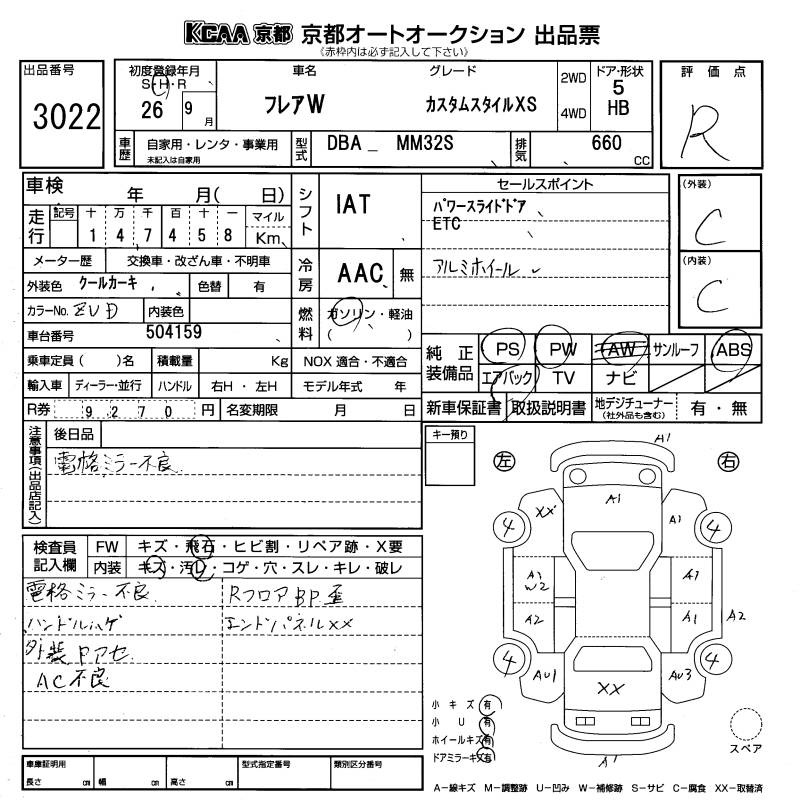 KCAA 京都 京都オートオークション 出品票
《赤枠内は必ず記入して下さい》
出品番号
3022
初度登録年月
S・H・R
26 9 月
車名
フレアW
グレード
カスタムスタイルXS
2WD
4WD
ドア・形状
5
HB
評価点
R
車歴
自家用・レンタ・事業用
未記入は自家用
型式
DBA_ MM32S
排気
660
CC
車検 年 月( 日)
走行
記号 十 万 千 百 十 一 マイル
1 4 7 4 5 8 Km
シフト
IAT
セールスポイント
パワースライドドア
ETC
アルミホイール
(外装)
C
(内装)
C
メーター歴 交換車・改ざん車・不明車
外装色 クールカーキ 色替 有
冷房
AAC 無
カラーNo. ZVD 内装色
燃料
ガソリン・軽油
( )
車台番号 504159
乗車定員( )名 積載量 Kg NOX 適合・不適合
輸入車 ディーラー・並行 ハンドル 右H・左H モデル年式 年
R券 9270円 名変期限 月 日
純正装備品
PS PW AW サンルーフ ABS
エアバック TV ナビ
新車保証書 取扱説明書 地デジチューナー (社外品も含む) 有・無
注意事項(出品店記入)
後日品
電格ミラー不良
キー預り
左 右
検査員記入欄
FW キズ・飛石・ヒビ割・リペア跡・X要
内装 キズ・汚レ・コゲ・穴・スレ・キレ・破レ
電格ミラー不良 RフロアBP歪
ハンドルハゲ エンドパネルXX
外装Pアセ
AC不良
A1
A1
XX A1
4 4
A1 W2 A1
A2 A1 A2
4 4
AU1 XX AU3
A1
小キズ 有
小U 有
ホイールキズ 有
ドアミラーキズ 有
スペア
車庫証明用
長さ cm 幅 cm 高さ cm
型式指定番号
類別区分番号
A-線キズ M-調整跡 U-凹み W-補修跡 S-サビ C-腐食 XX-取替済